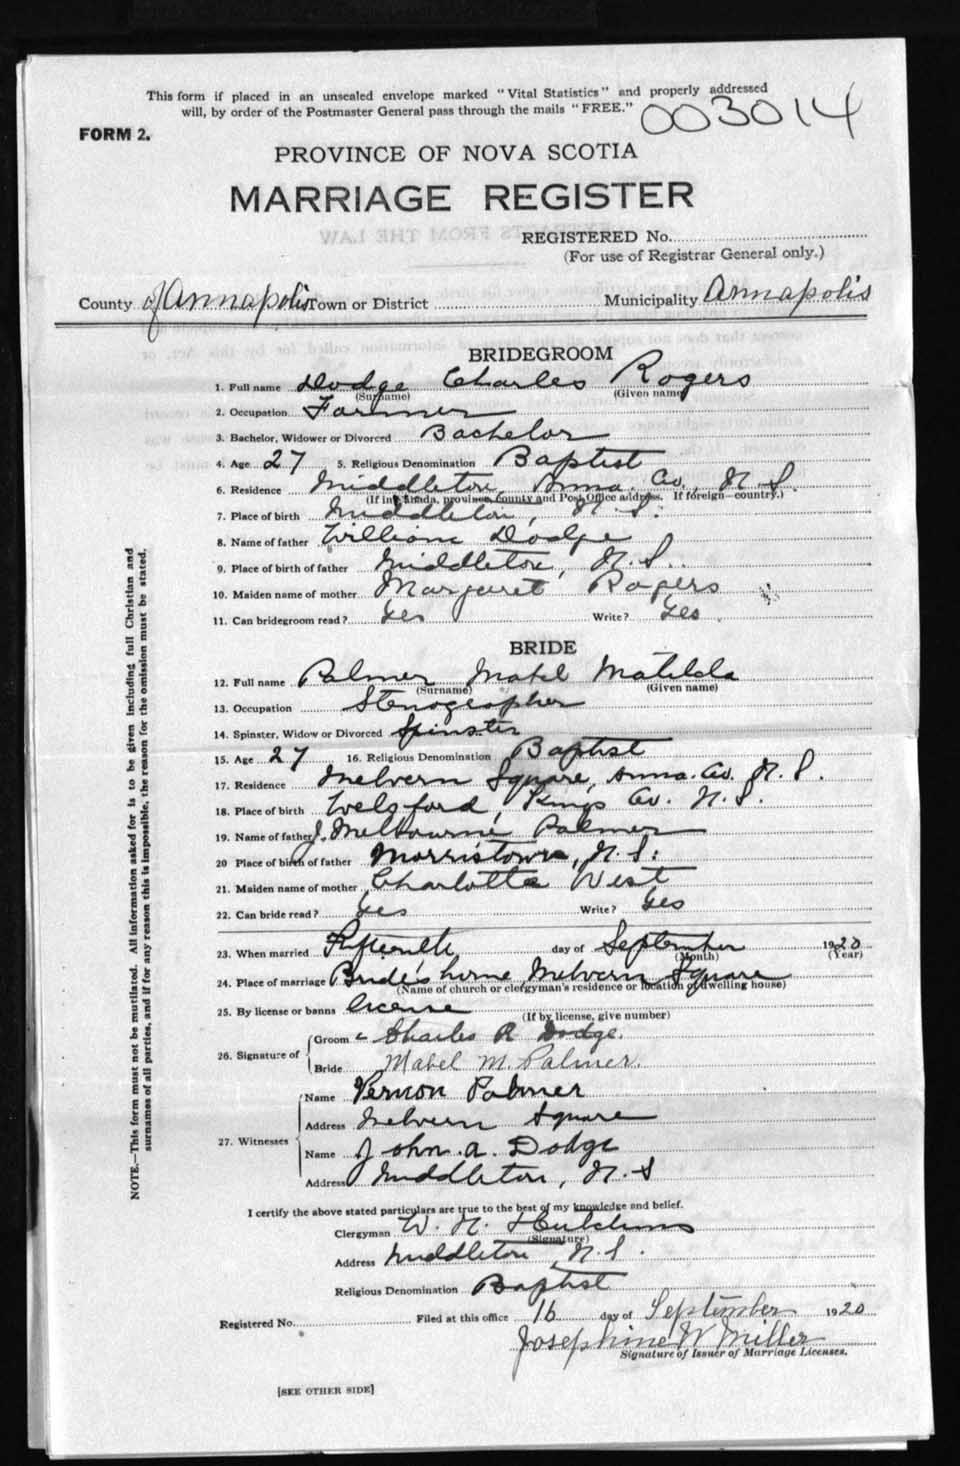 This form if placed in an unsealed envelope marked "Vital Statistics" and properly addressed
will, by order of the Postmaster General pass through the mails "FREE."
003014
FORM 2.
PROVINCE OF NOVA SCOTIA
MARRIAGE REGISTER
REGISTERED No.
(For use of Registrar General only.)
County of Annapolis Town or District Municipality Annapolis
BRIDEGROOM
1. Full name Dodge Charles Rogers
(Surname) (Given name)
2. Occupation Farmer
3. Bachelor, Widower or Divorced Bachelor
4. Age 27 5. Religious Denomination Baptist
6. Residence Middleton, Anna. Co., N.S.
(If in Canada, province, county and Post Office address. If foreign—country.)
7. Place of birth Middleton, N.S.
8. Name of father William Dodge
9. Place of birth of father Middleton, N.S.
10. Maiden name of mother Margaret Rogers
11. Can bridegroom read? Yes Write? Yes
BRIDE
12. Full name Palmer Mabel Matilda
(Surname) (Given name)
13. Occupation Stenographer
14. Spinster, Widow or Divorced Spinster
15. Age 27 16. Religious Denomination Baptist
17. Residence Melvern Square, Anna. Co. N.S.
18. Place of birth Welsford, Kings Co. N.S.
19. Name of father J. Melbourne Palmer
20 Place of birth of father Morristown, N.S.
21. Maiden name of mother Charlotte West
22. Can bride read? Yes Write? Yes
23. When married Fifteenth day of September 1920
(Month) (Year)
24. Place of marriage Bride's home, Melvern Square
(Name of church or clergyman's residence or location of dwelling house)
25. By license or banns license
(If by license, give number)
26. Signature of
Groom Charles R Dodge.
Bride Mabel M. Palmer.
27. Witnesses
Name Vernon Palmer
Address Melvern Square
Name John A. Dodge
Address Middleton, N.S
I certify the above stated particulars are true to the best of my knowledge and belief.
Clergyman W. N. Hutchins
(Signature)
Address Middleton, N.S.
Religious Denomination Baptist
Registered No. Filed at this office 16 day of September 1920
Josephine W Miller
Signature of Issuer of Marriage Licenses.
[SEE OTHER SIDE]
NOTE.—This form must not be mutilated. All information asked for is to be given including full Christian and
surnames of all parties, and if for any reason this is impossible, the reason for the omission must be stated.